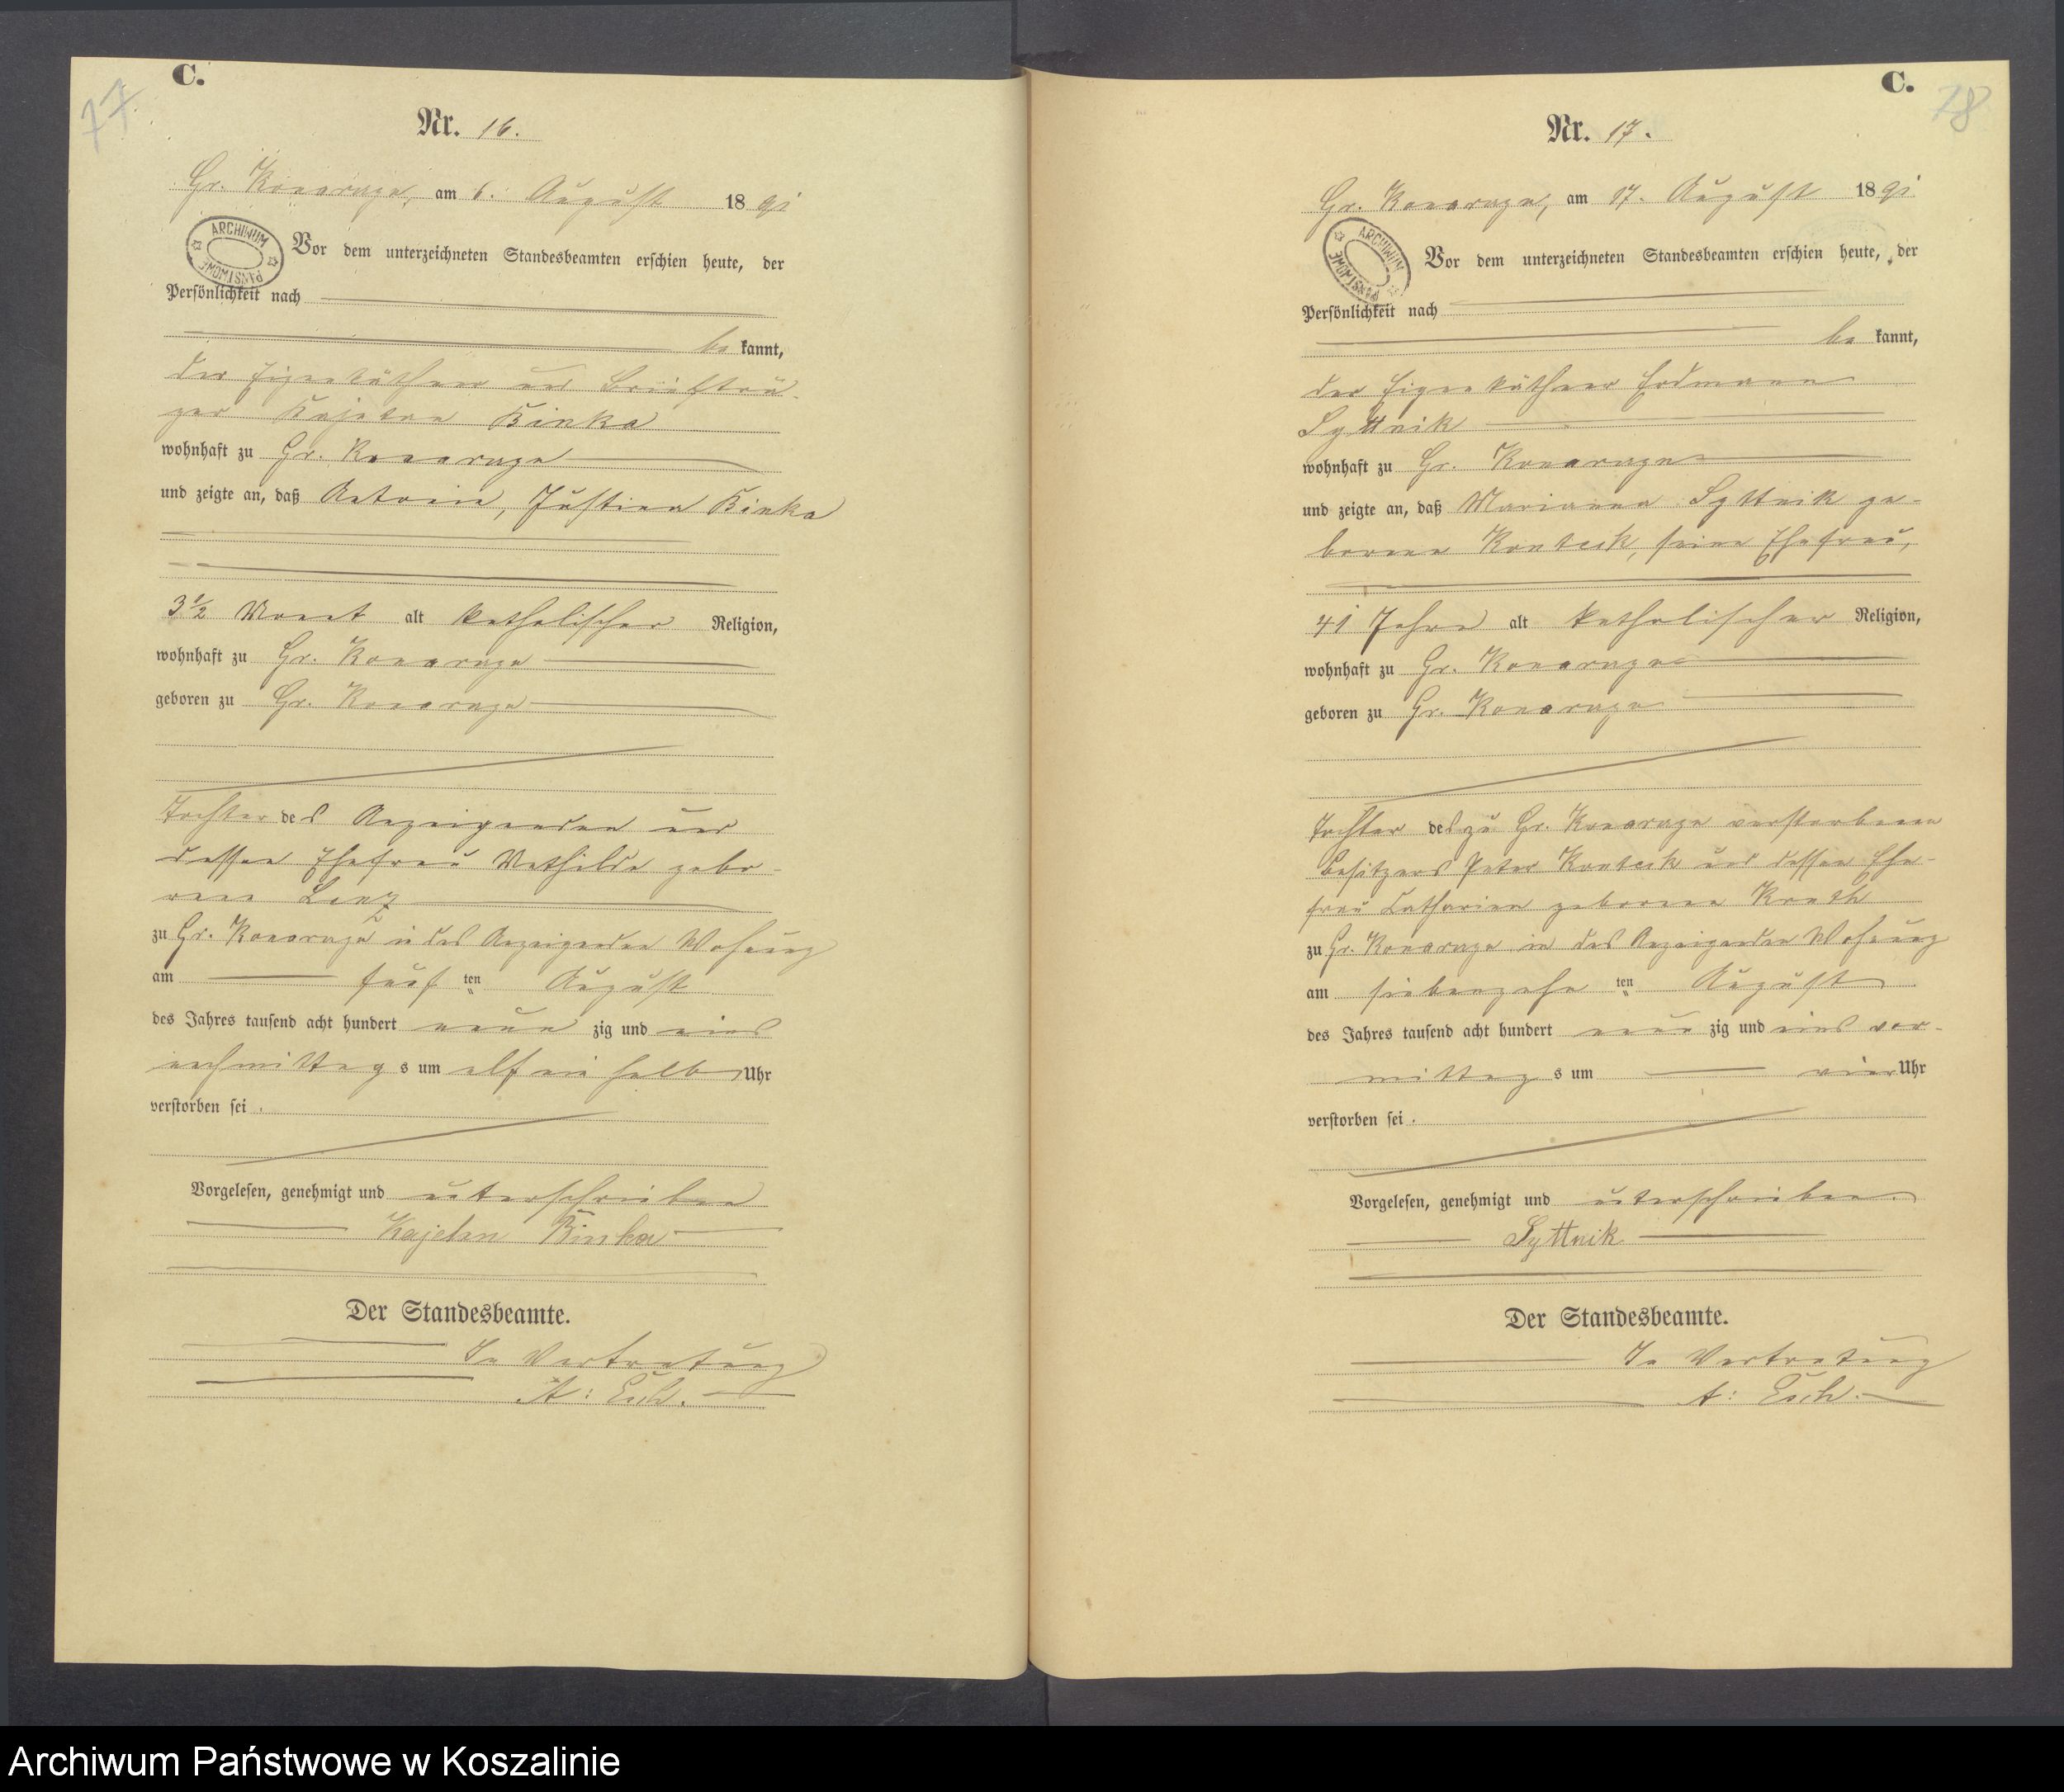 77
C.
Nr. 16.
Gr. Konarzyn, am 6. August 1891
ARCHIWUM PAŃSTWOWE
Vor dem unterzeichneten Standesbeamten erschien heute, der
Persönlichkeit nach
be kannt,
der Eigenkäthner und Briefträ-
ger Kajetan Binka
wohnhaft zu Gr. Konarzyn
und zeigte an, daß Antonie, Justina Binka
3½ Monat alt katholischer Religion,
wohnhaft zu Gr. Konarzyn
geboren zu Gr. Konarzyn
Tochter des Anzeigenden und
dessen Ehefrau Mathilde gebo-
rene Lenz
zu Gr. Konarzyn in des Anzeigenden Wohnung
am fünf ten August
des Jahres tausend acht hundert neun zig und eins
nachmittag s um elf ein halb Uhr
verstorben sei.
Vorgelesen, genehmigt und unterschrieben
Kajetan Binka
Der Standesbeamte.
In Vertretung
A: Esch.
C.
78
Nr. 17.
Gr. Konarzyn, am 17. August 1891
ARCHIWUM PAŃSTWOWE
Vor dem unterzeichneten Standesbeamten erschien heute, der
Persönlichkeit nach
be kannt,
der Eigenkäthner Erdmann
Syttnik
wohnhaft zu Gr. Konarzyn
und zeigte an, daß Marianna Syttnik ge-
borene seine Ehefrau,
41 Jahre alt katholischer Religion,
wohnhaft zu Gr. Konarzyn
geboren zu Gr. Konarzyn
Tochter des zu Gr. Konarzyn verstorbenen
Besitzers Peter und dessen Ehe-
frau Catharina geborene
zu Gr. Konarzyn in des Anzeigenden Wohnung
am siebenzehn ten August
des Jahres tausend acht hundert neun zig und eins vor-
mittag s um vier Uhr
verstorben sei.
Vorgelesen, genehmigt und unterschrieben.
Syttnik
Der Standesbeamte.
In Vertretung
A: Esch.
Archiwum Państwowe w Koszalinie